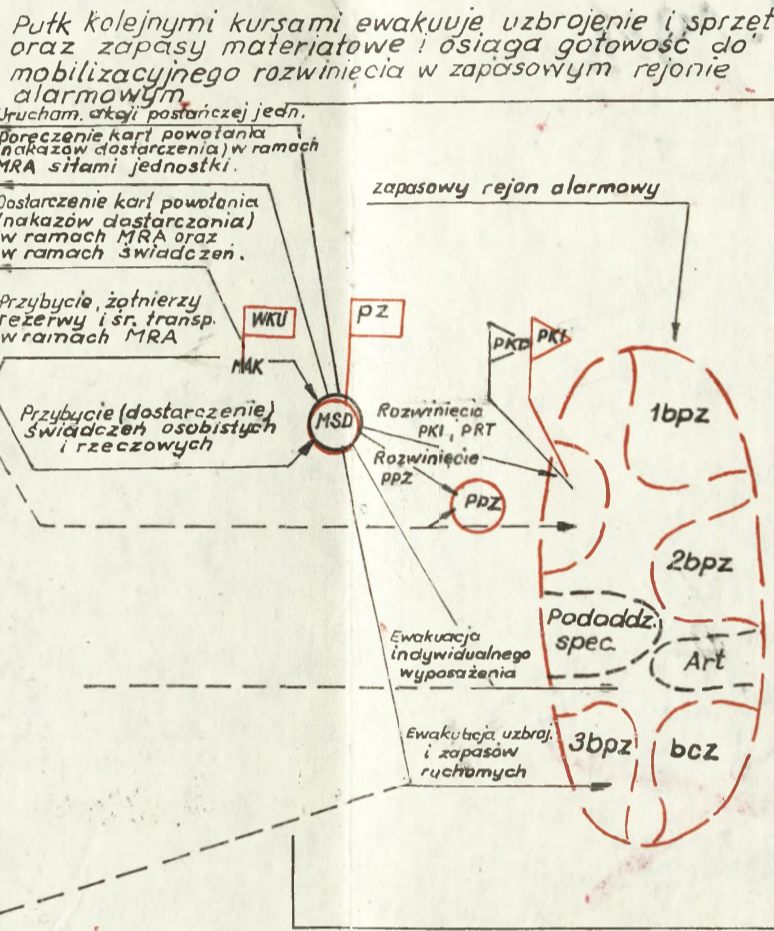 Pułk kolejnymi kursami ewakuuje uzbrojenie i sprzęt
oraz zapasy materiałowe i osiąga gotowość do
mobilizacyjnego rozwinięcia w zapasowym rejonie
alarmowym
Urucham. akcji posłańczej jedn.
Doręczenie kart powołania
(nakazów dostarczenia) w ramach
MRA siłami jednostki.
Dostarczenie kart powołania
(nakazów dostarczania)
w ramach MRA oraz
w ramach świadczeń.
zapasowy rejon alarmowy
Przybycie, żołnierzy
rezerwy i śr. transp.
w ramach MRA
WKU
pz
MAK
PKD
PKI
1bpz
Przybycie (dostarczenie)
świadczeń osobistych
i rzeczowych
MSD
Rozwinięcia
PKI, PRT
Rozwinięcie
PPŻ
PPŻ
2bpz
Pododdz.
spec.
Art
Ewakuacja
indywidualnego
wyposażenia
Ewakuacja uzbroj.
i zapasów
ruchomych
3bpz
bcz